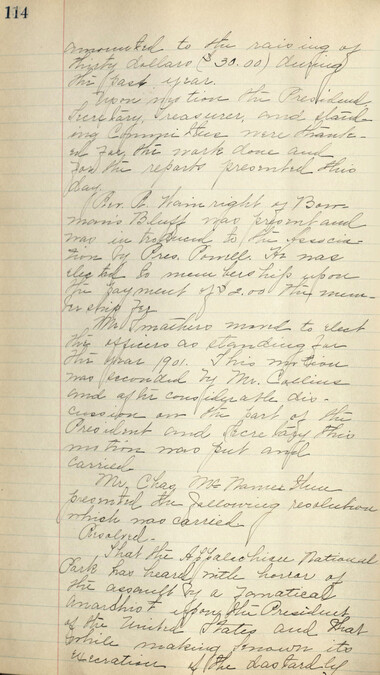 114
amounted to the raising of
thirty dollars ($30.00) during
the past year.
Upon motion the President
Secretary, Treasurer, and stand
ing Committees were thank-
ed for the work done and
for the reports presented this
day.
Rev. R. Wainright of Bow
mans Bluff was present and
was introduced to the Associa-
tion by Pres. Powell. He was
elected to membership upon
the payment of $2.00 the mem-
bership fee
Mr. Smathers moved to elect
the officers as standing for
the year 1901. This motion
was seconded by Mr. Collins
and after considerable dis-
cussion on the part of the
President and Secretary this
motion was put and
carried
Mr. Chas McNamee then
presented the following resolution
which was carried
Resolved.
That the Appalachian National
Park has heard with horror of
the assault by a fanatical
anarchist upon the President
of the United States and that
while making known its
execration of the dastardly